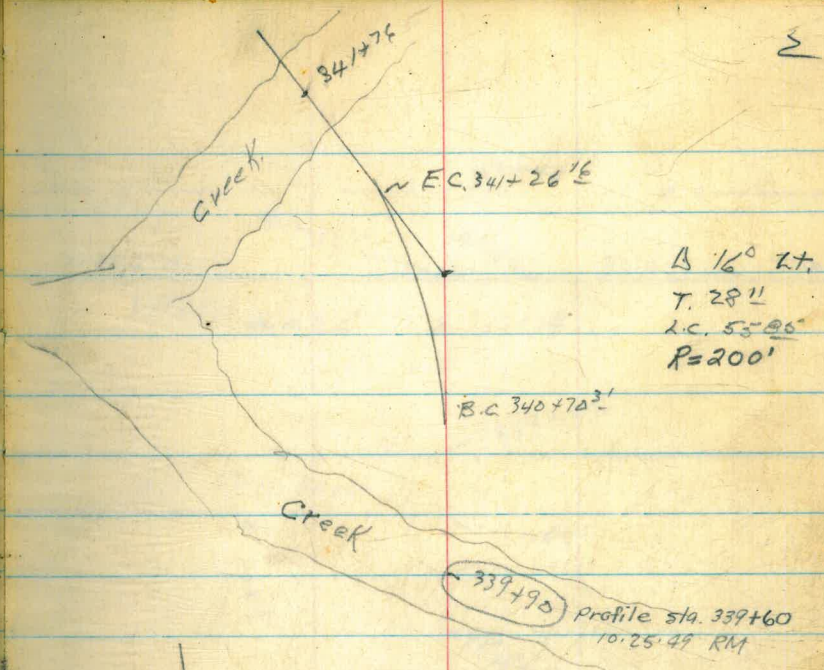 341+76
Creek.
E.C. 341+26 16
Δ 16° Lt.
T. 28 11
L.C. 55 85
R=200'
B.C. 340+70 31
Creek
339+90
Profile sta. 339+60
10.25.49 RM